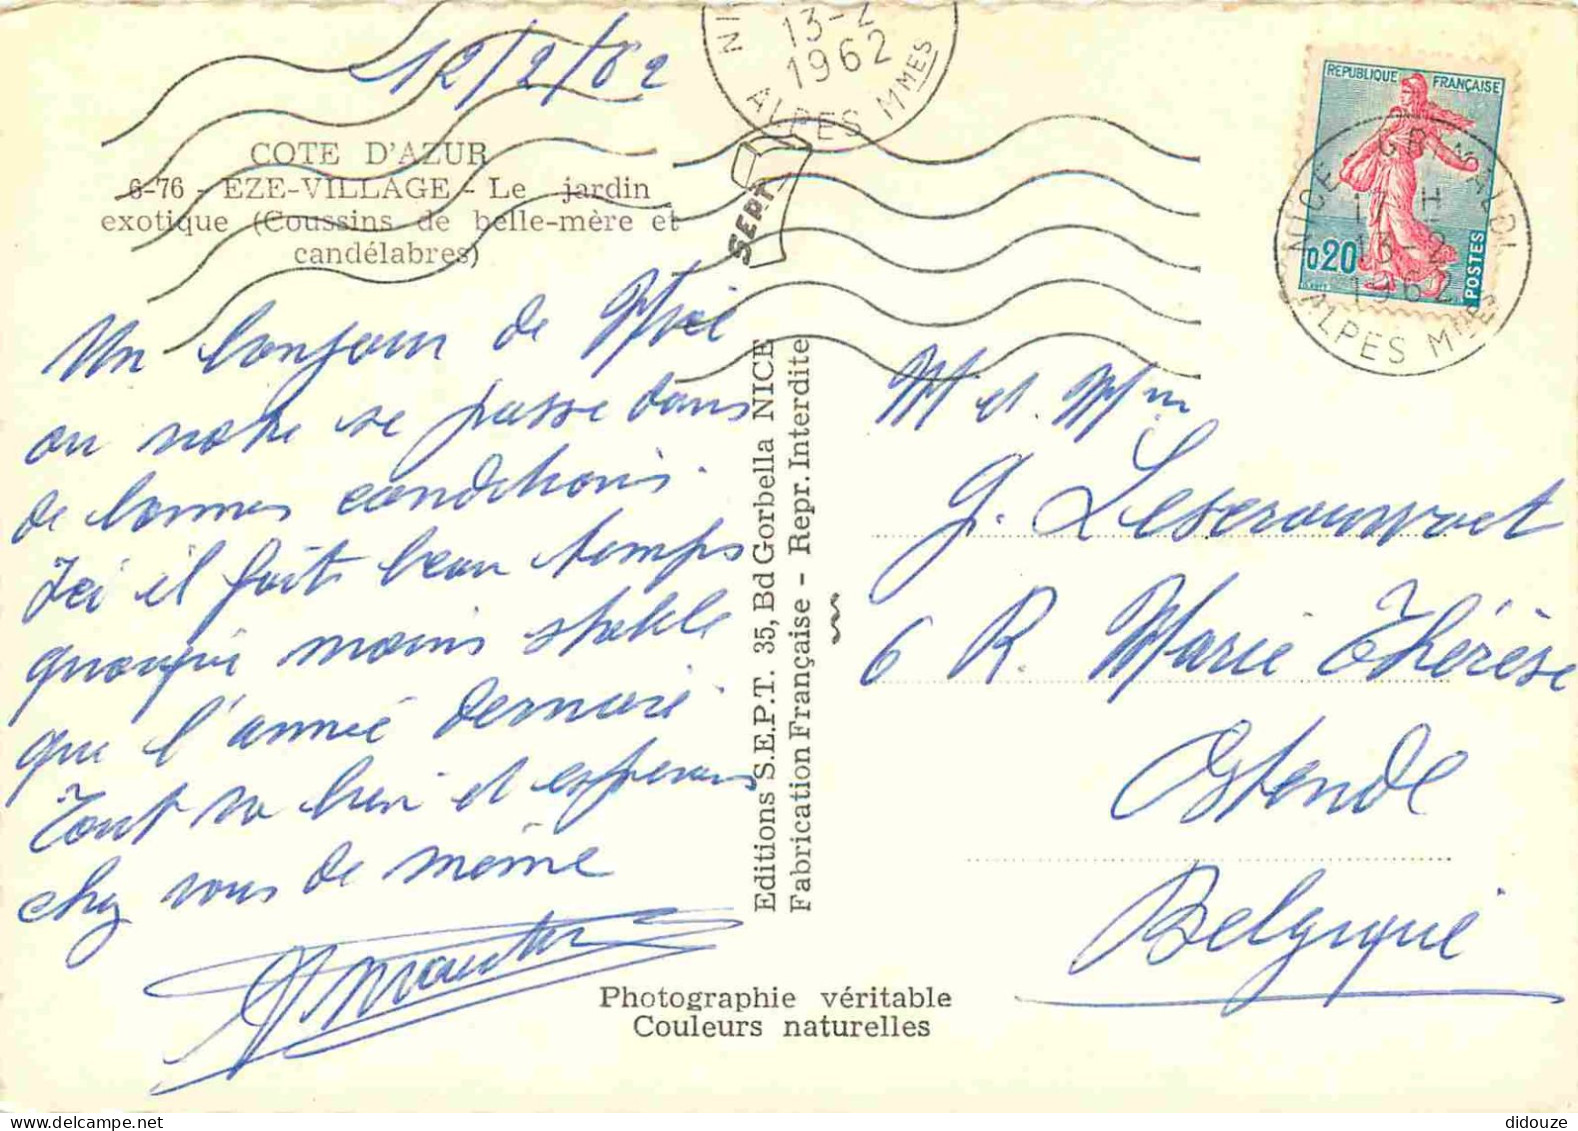 12/2/62
NI
13-2
1962
ALPES MMES
COTE D'AZUR
6-76 - EZE-VILLAGE - Le jardin
exotique (Coussins de belle-mère et
candélabres)
SEPT
REPUBLIQUE FRANÇAISE
0,20
POSTES
NICE GRIMALDI
17 H
13-2
1962
ALPES MMES
Un bonjour de Nice
ou notre se passe dans
de bonnes conditions.
Ici il fait beau temps
quoique moins stable
que l'année dernière
Tout va bien et esperons
chez vous de même
Editions S.E.P.T. 35, Bd Gorbella NICE
Fabrication Française - Repr. Interdite
M et Mm
G. Leserouwvoet
6 R. Marie Thérèse
Ostende
Belgique
Photographie véritable
Couleurs naturelles
didouze